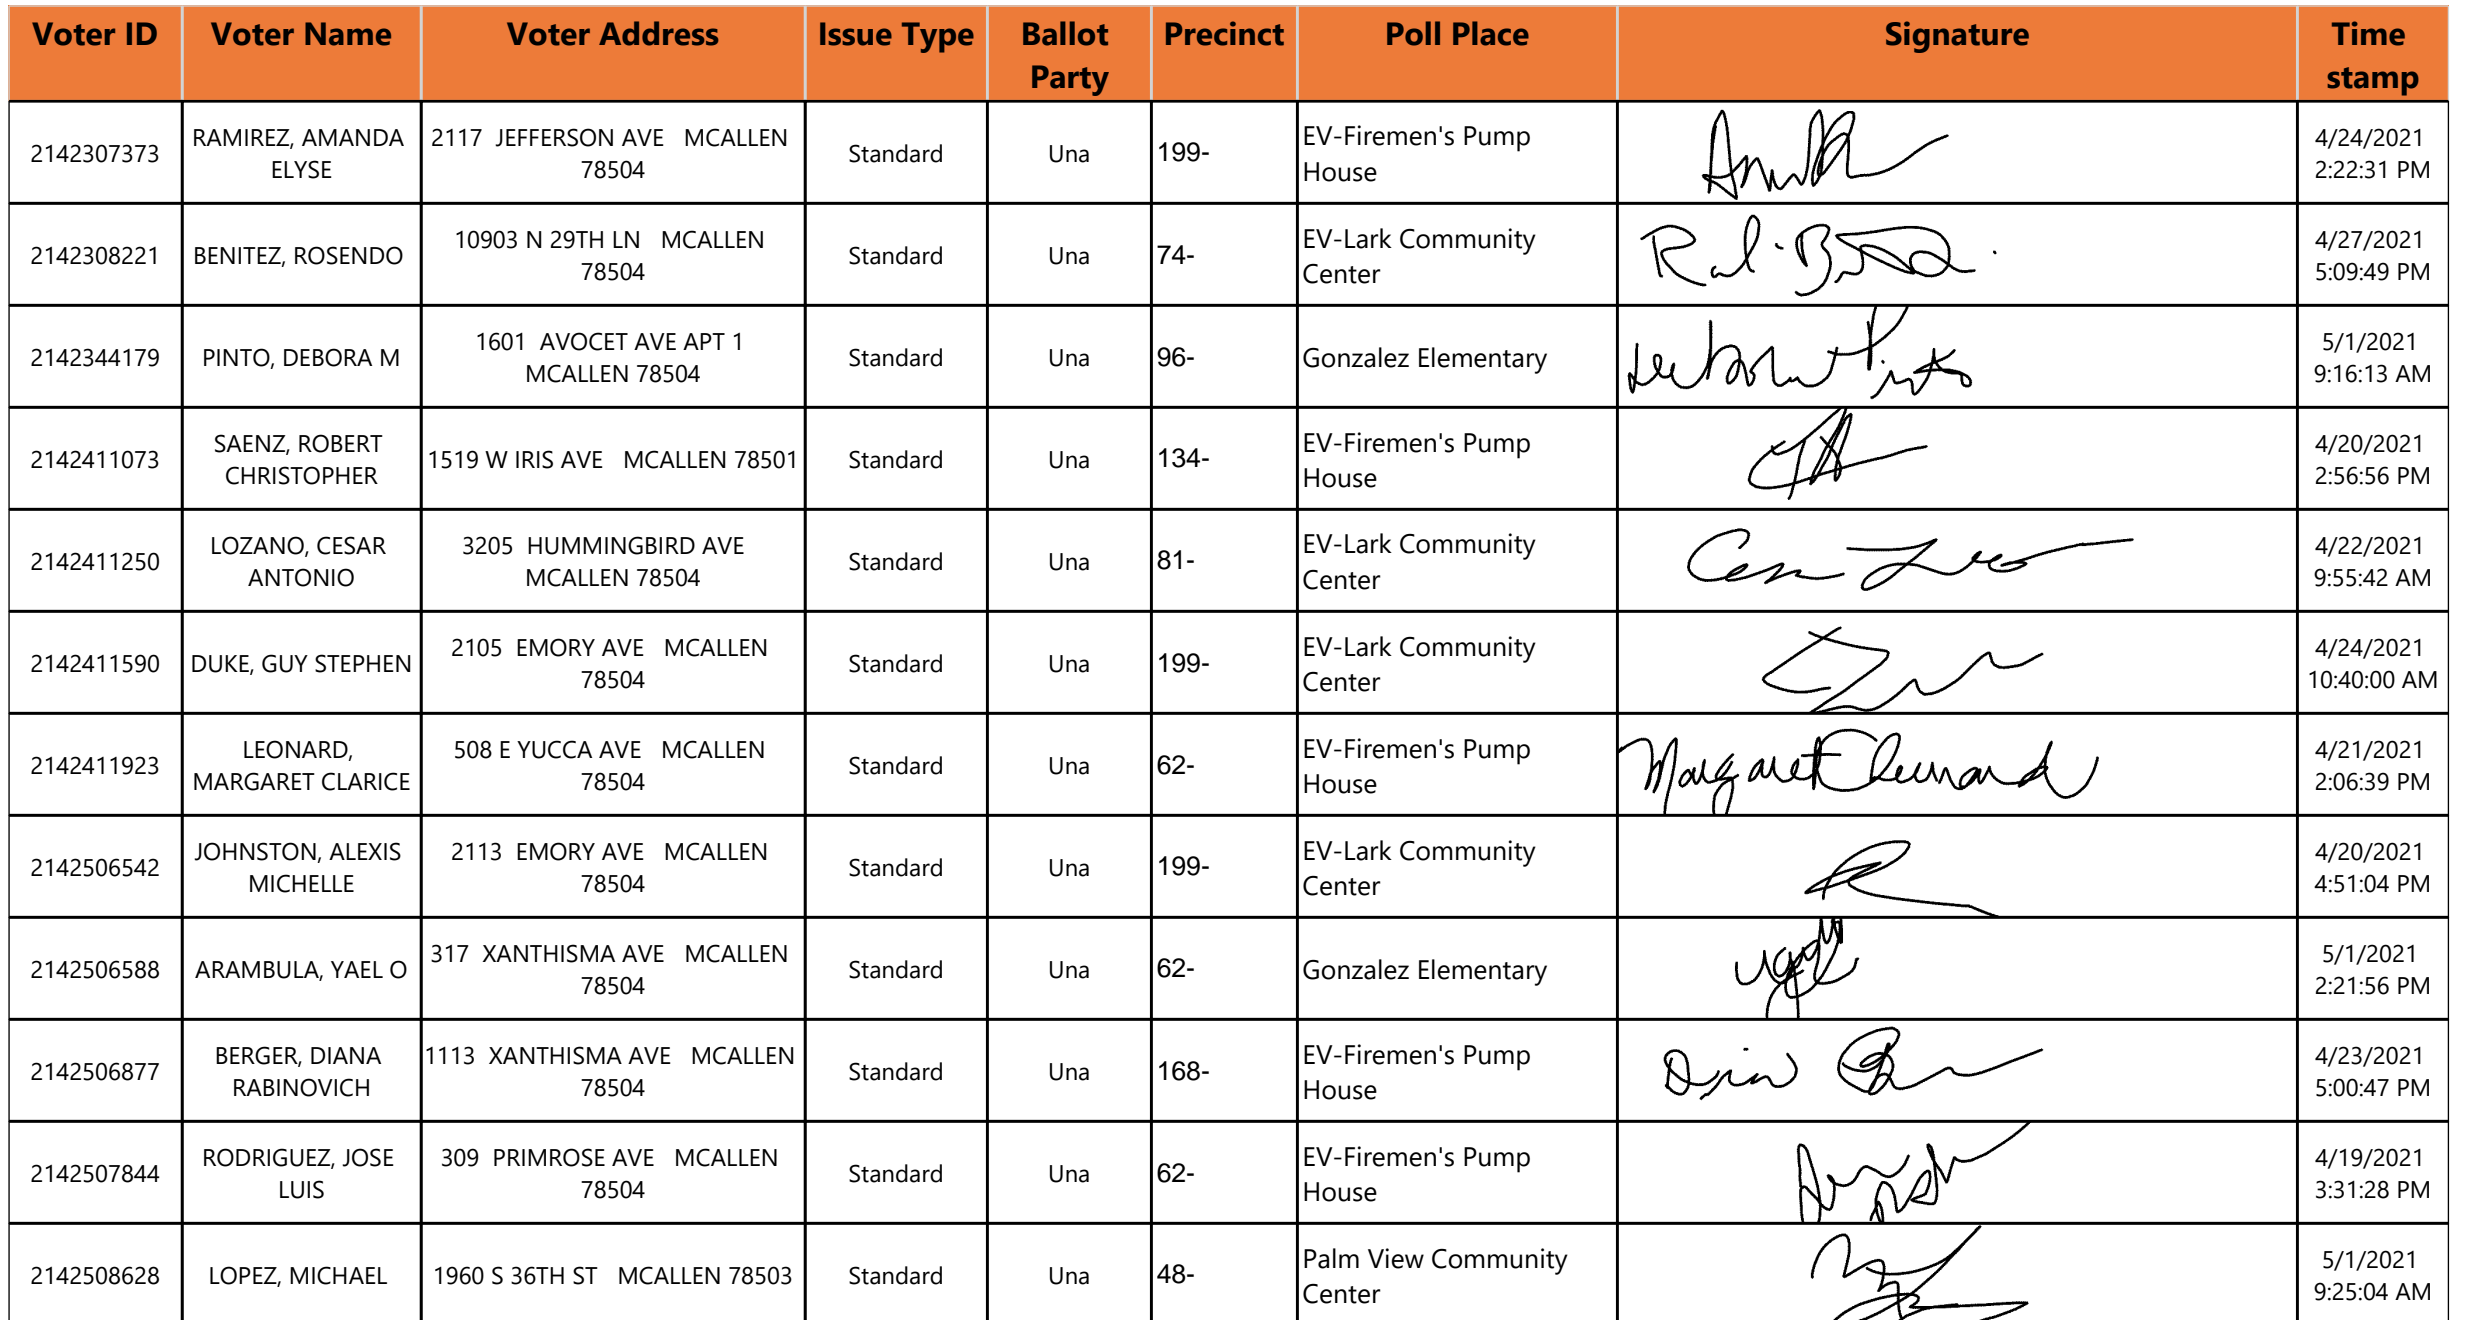 Voter ID Voter Name Voter Address Issue Type Ballot Party Precinct Poll Place Signature Time stamp
2142307373 RAMIREZ, AMANDA ELYSE 2117 JEFFERSON AVE MCALLEN 78504 Standard Una 199- EV-Firemen's Pump House 4/24/2021 2:22:31 PM
2142308221 BENITEZ, ROSENDO 10903 N 29TH LN MCALLEN 78504 Standard Una 74- EV-Lark Community Center 4/27/2021 5:09:49 PM
2142344179 PINTO, DEBORA M 1601 AVOCET AVE APT 1 MCALLEN 78504 Standard Una 96- Gonzalez Elementary 5/1/2021 9:16:13 AM
2142411073 SAENZ, ROBERT CHRISTOPHER 1519 W IRIS AVE MCALLEN 78501 Standard Una 134- EV-Firemen's Pump House 4/20/2021 2:56:56 PM
2142411250 LOZANO, CESAR ANTONIO 3205 HUMMINGBIRD AVE MCALLEN 78504 Standard Una 81- EV-Lark Community Center 4/22/2021 9:55:42 AM
2142411590 DUKE, GUY STEPHEN 2105 EMORY AVE MCALLEN 78504 Standard Una 199- EV-Lark Community Center 4/24/2021 10:40:00 AM
2142411923 LEONARD, MARGARET CLARICE 508 E YUCCA AVE MCALLEN 78504 Standard Una 62- EV-Firemen's Pump House Margaret C Leonard 4/21/2021 2:06:39 PM
2142506542 JOHNSTON, ALEXIS MICHELLE 2113 EMORY AVE MCALLEN 78504 Standard Una 199- EV-Lark Community Center 4/20/2021 4:51:04 PM
2142506588 ARAMBULA, YAEL O 317 XANTHISMA AVE MCALLEN 78504 Standard Una 62- Gonzalez Elementary 5/1/2021 2:21:56 PM
2142506877 BERGER, DIANA RABINOVICH 1113 XANTHISMA AVE MCALLEN 78504 Standard Una 168- EV-Firemen's Pump House 4/23/2021 5:00:47 PM
2142507844 RODRIGUEZ, JOSE LUIS 309 PRIMROSE AVE MCALLEN 78504 Standard Una 62- EV-Firemen's Pump House 4/19/2021 3:31:28 PM
2142508628 LOPEZ, MICHAEL 1960 S 36TH ST MCALLEN 78503 Standard Una 48- Palm View Community Center 5/1/2021 9:25:04 AM